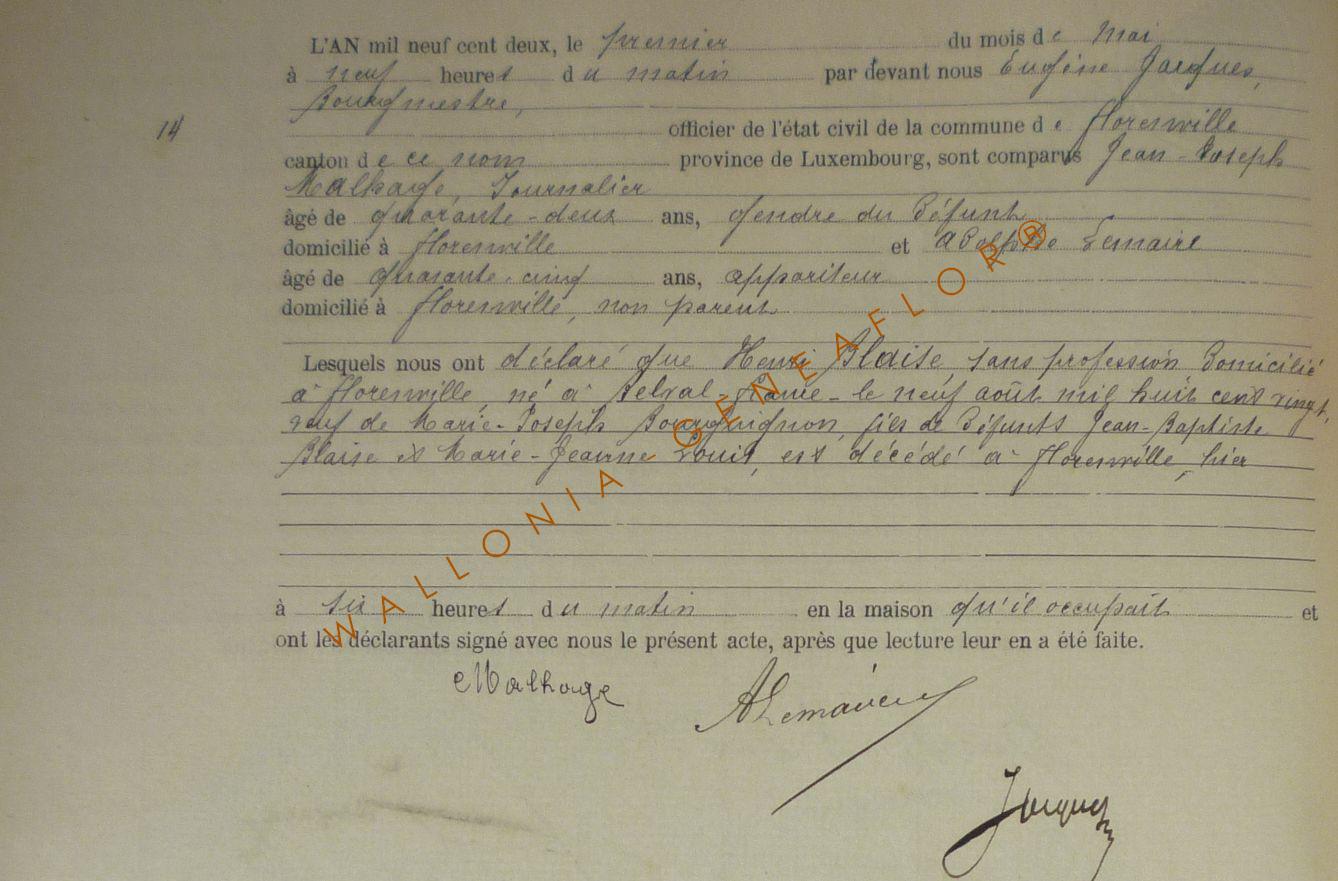 L'AN mil neuf cent deux, le premier du mois de Mai
à neuf heures du matin par devant nous Eugène Jacques,
Bourgmestre,
14
officier de l'état civil de la commune de Florenville
canton de ce nom province de Luxembourg, sont comparus Jean-Joseph
Malhage, Journalier
âgé de quarante-deux ans, gendre du Défunt
domicilié à Florenville et Adolphe Lemaire
âgé de quarante-cinq ans, appariteur
domicilié à Florenville, non parent
Lesquels nous ont déclaré que Henri Blaise sans profession Domicilié
à Florenville, né à le neuf août mil huit cent vingt,
neuf de Marie-Joseph Bourguignon, fils de Défunts Jean-Baptiste
Blaise et Marie-Jeanne Louis, est décédé à Florenville, hier
à six heures du matin en la maison qu'il occupait et
ont les déclarants signé avec nous le présent acte, après que lecture leur en a été faite.
Malhage
ALemaire
Jacques
WALLONIA GENEAFLOR®